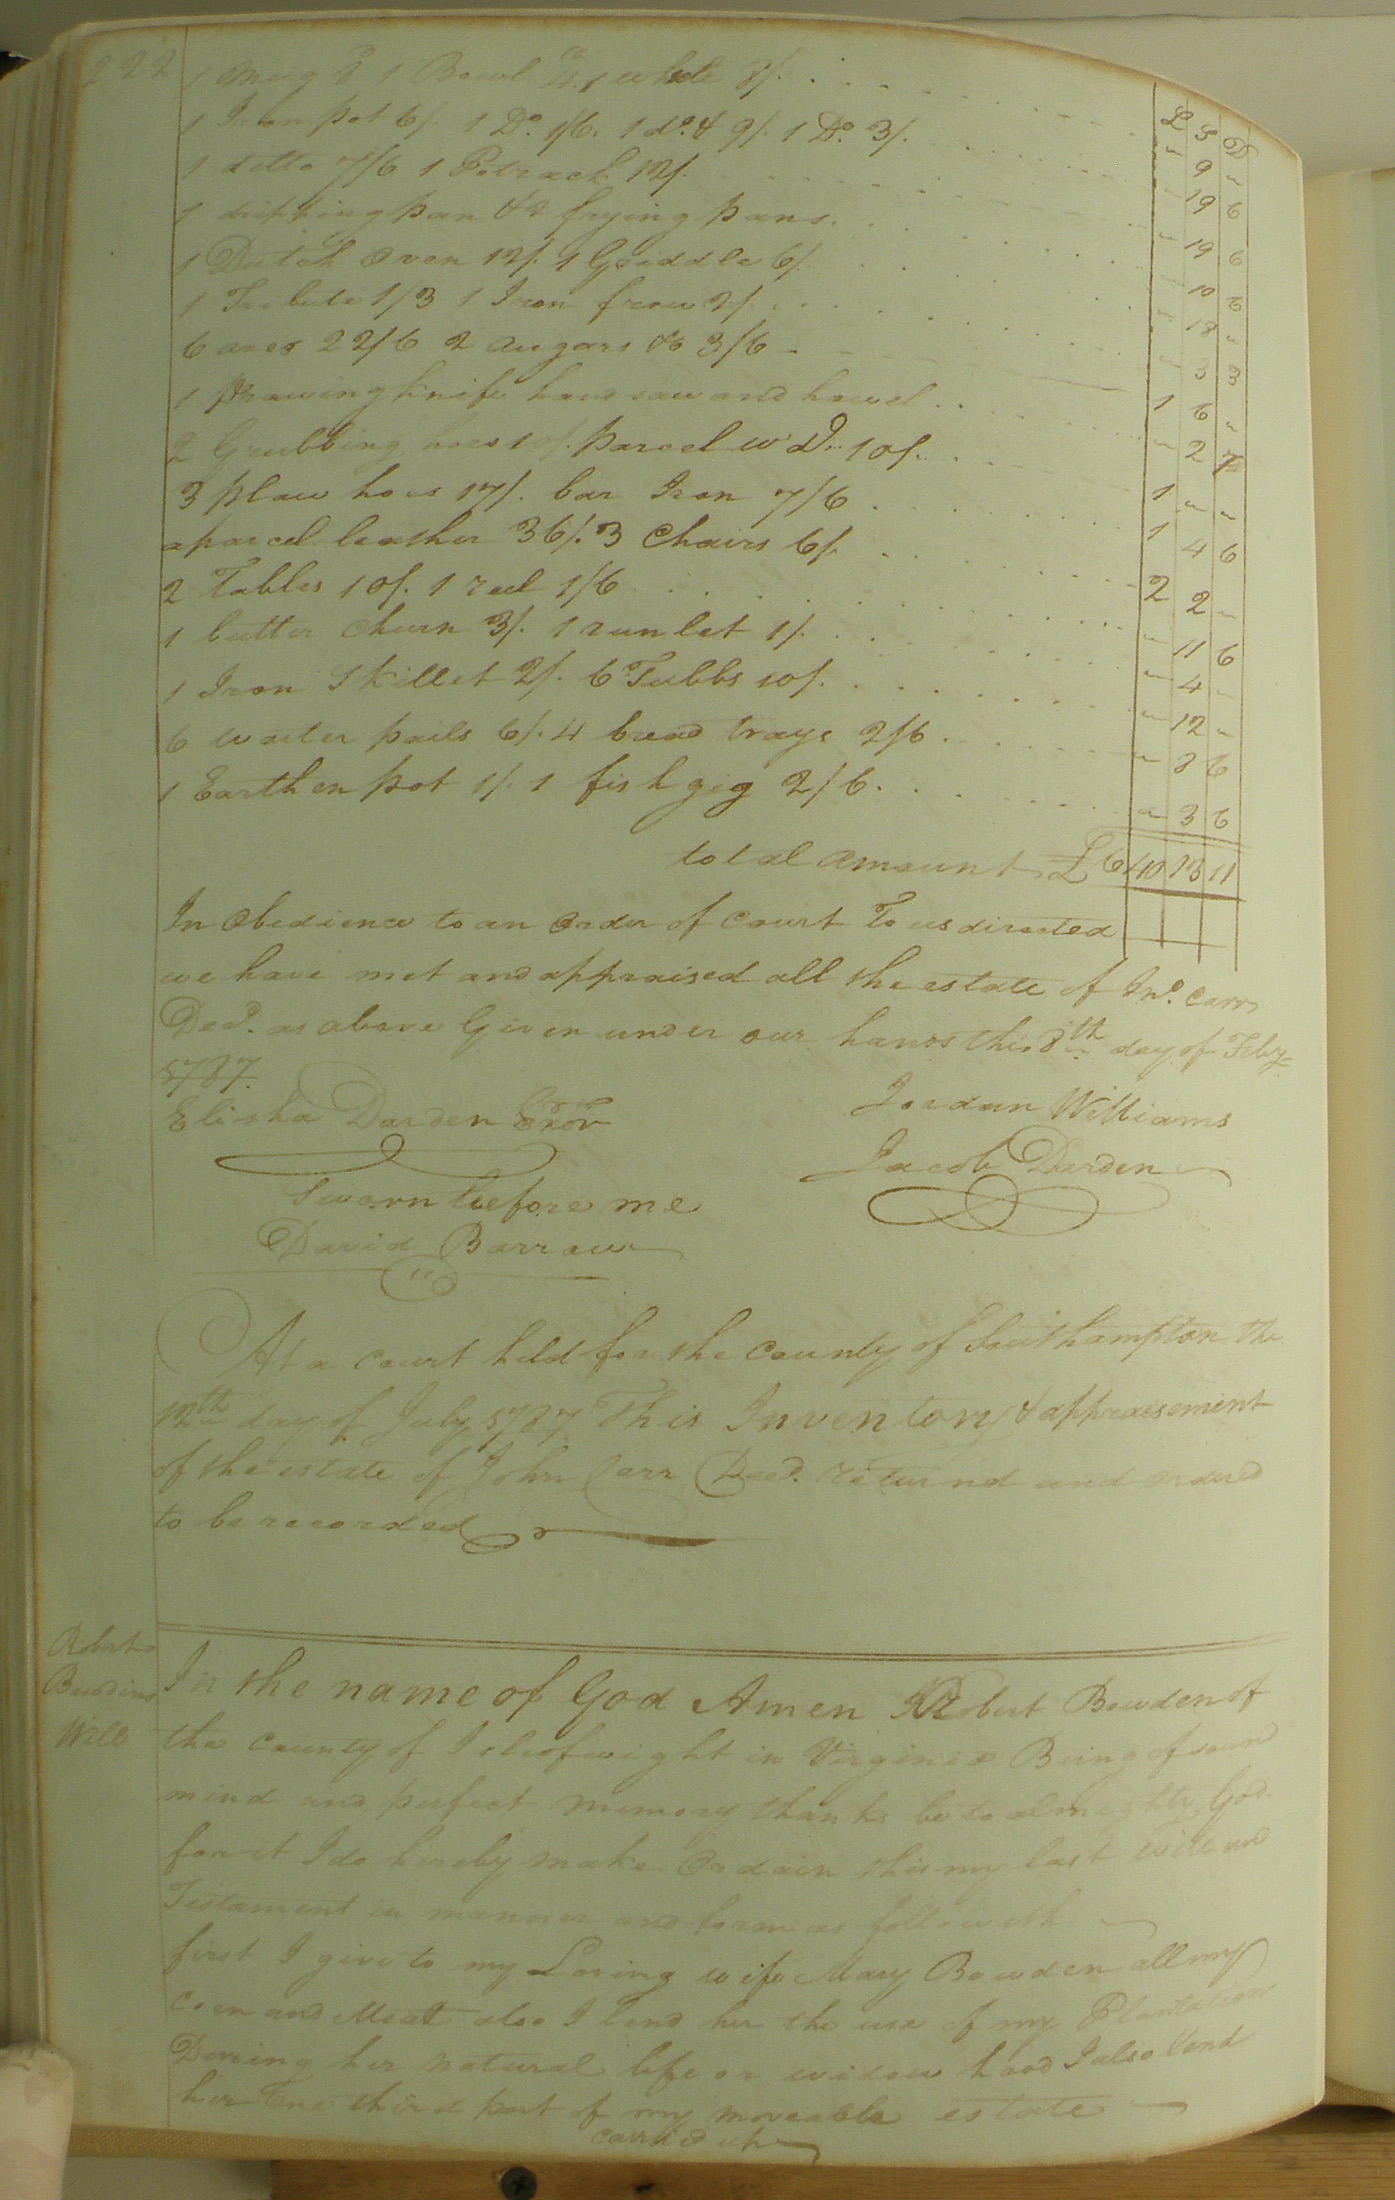 222
1 mug 8d 1 Bowl 4d, 1 white 8/. £ S D
1 Iron pot 6/. 1 Do. 1/6. 1 do. & 9/. 1 Do. 3/. " 9 "
1 ditto 7/6 1 Potrack 12/. " 19 6
1 dripping pan & 2 frying pans. " 19 6
1 Dutch oven 12/. 1 Griddle 6/. " 10 6
1 1/3 1 Iron frow 2/. " 18 "
6 axes 22/6 2 augars &c 3/6 " 3 3
1 Drawing knife hand saw and howel 1 6 "
2 Grubbing hoes 10/. parcel wd. Do. 10/. " 2 7
3 plaw hoes 17/. bar Iron 7/6 1 " "
a parcel leather 36/. 3 Chairs 6/. 1 4 6
2 Tables 10/. 1 reel 1/6 2 2 "
1 butter churn 3/. 1 runlet 1/. " 11 6
1 Iron Skillet 2/. 6 Tubbs 10/. " 4 "
6 water pails 6/. 4 bread trays 2/6 " 12 "
1 Earthen pot 1/. 1 fish gig 2/6. " 8 6
" 3 6
total amount £640 13 11
In Obedience to an Order of Court To us directed
we have met and appraised all the estate of Jno. Carr
Decd. as above Given under our hands this 8th day of Feby
1787.
Elisha Darden Exor
Jordan Williams
Jacob Darden
Sworn before me
David Barrow
At a court held for the County of Southampton the
12th day of July 1787 This Inventory & appraisement
of the estate of John Carr Decd. returnd and ordured
to be recorded
Robert
Bowdens
Will
In the name of God Amen I Robert Bowden of
the County of Isle of wight in Virginia Being of sound
mind and perfect memory thanks be to almighty God
for it I do hereby make Ordain this my last will and
Testament in manner and form as followeth
first I give to my Loving wife Mary Bowden all my
corn and Meatt also I lend her the use of my Plantation
During her natural life or widow hood I also lend
her one third part of my moveable estate
carried up